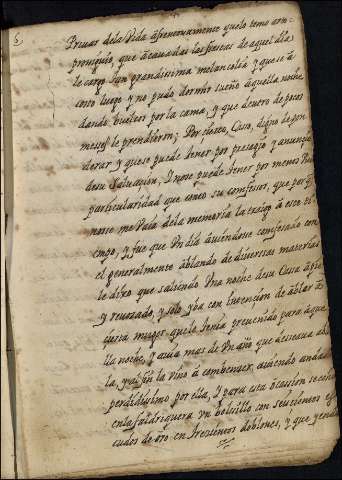 Priuar dela Vida afrentosamente quelo tomo a su
proniçio, que acauadas las fiestas de aquel dia
le cargo Tan grandissima melancolia y que se a
costo luego y no pudo dormir sueño aquella noche
dando bueltos por la cama, y que dentro de pocos
meses le prendieron; Por cierto, Caso, digno de pon
derar y queso puede tener por presagio y anunçio
desu Saluaçion, I nose puede tener por menos Rara
particularidad que conto su confessor, que porq̃
nose me Vaia dela memoria la traigo a este ti
empo, y fue que Vn dia auiendose confesado con
el generalmente ablando de diuersas materias
le dixo que saliendo Vna noche desu Casa a pie
y reuozado, y solo yba con intençion de ablar a
cierta muger quelo tenia preuenido para aque
lla noche, y auia mas de Vn año que desseaua
la, y al fin la vino a combençer, auiendo andado
perdidissimo por ella, y para esta ocassion
en la faldriquera vn bolsillo con seiscientos es
cudos de oro en trezientos doblones, y que yendo